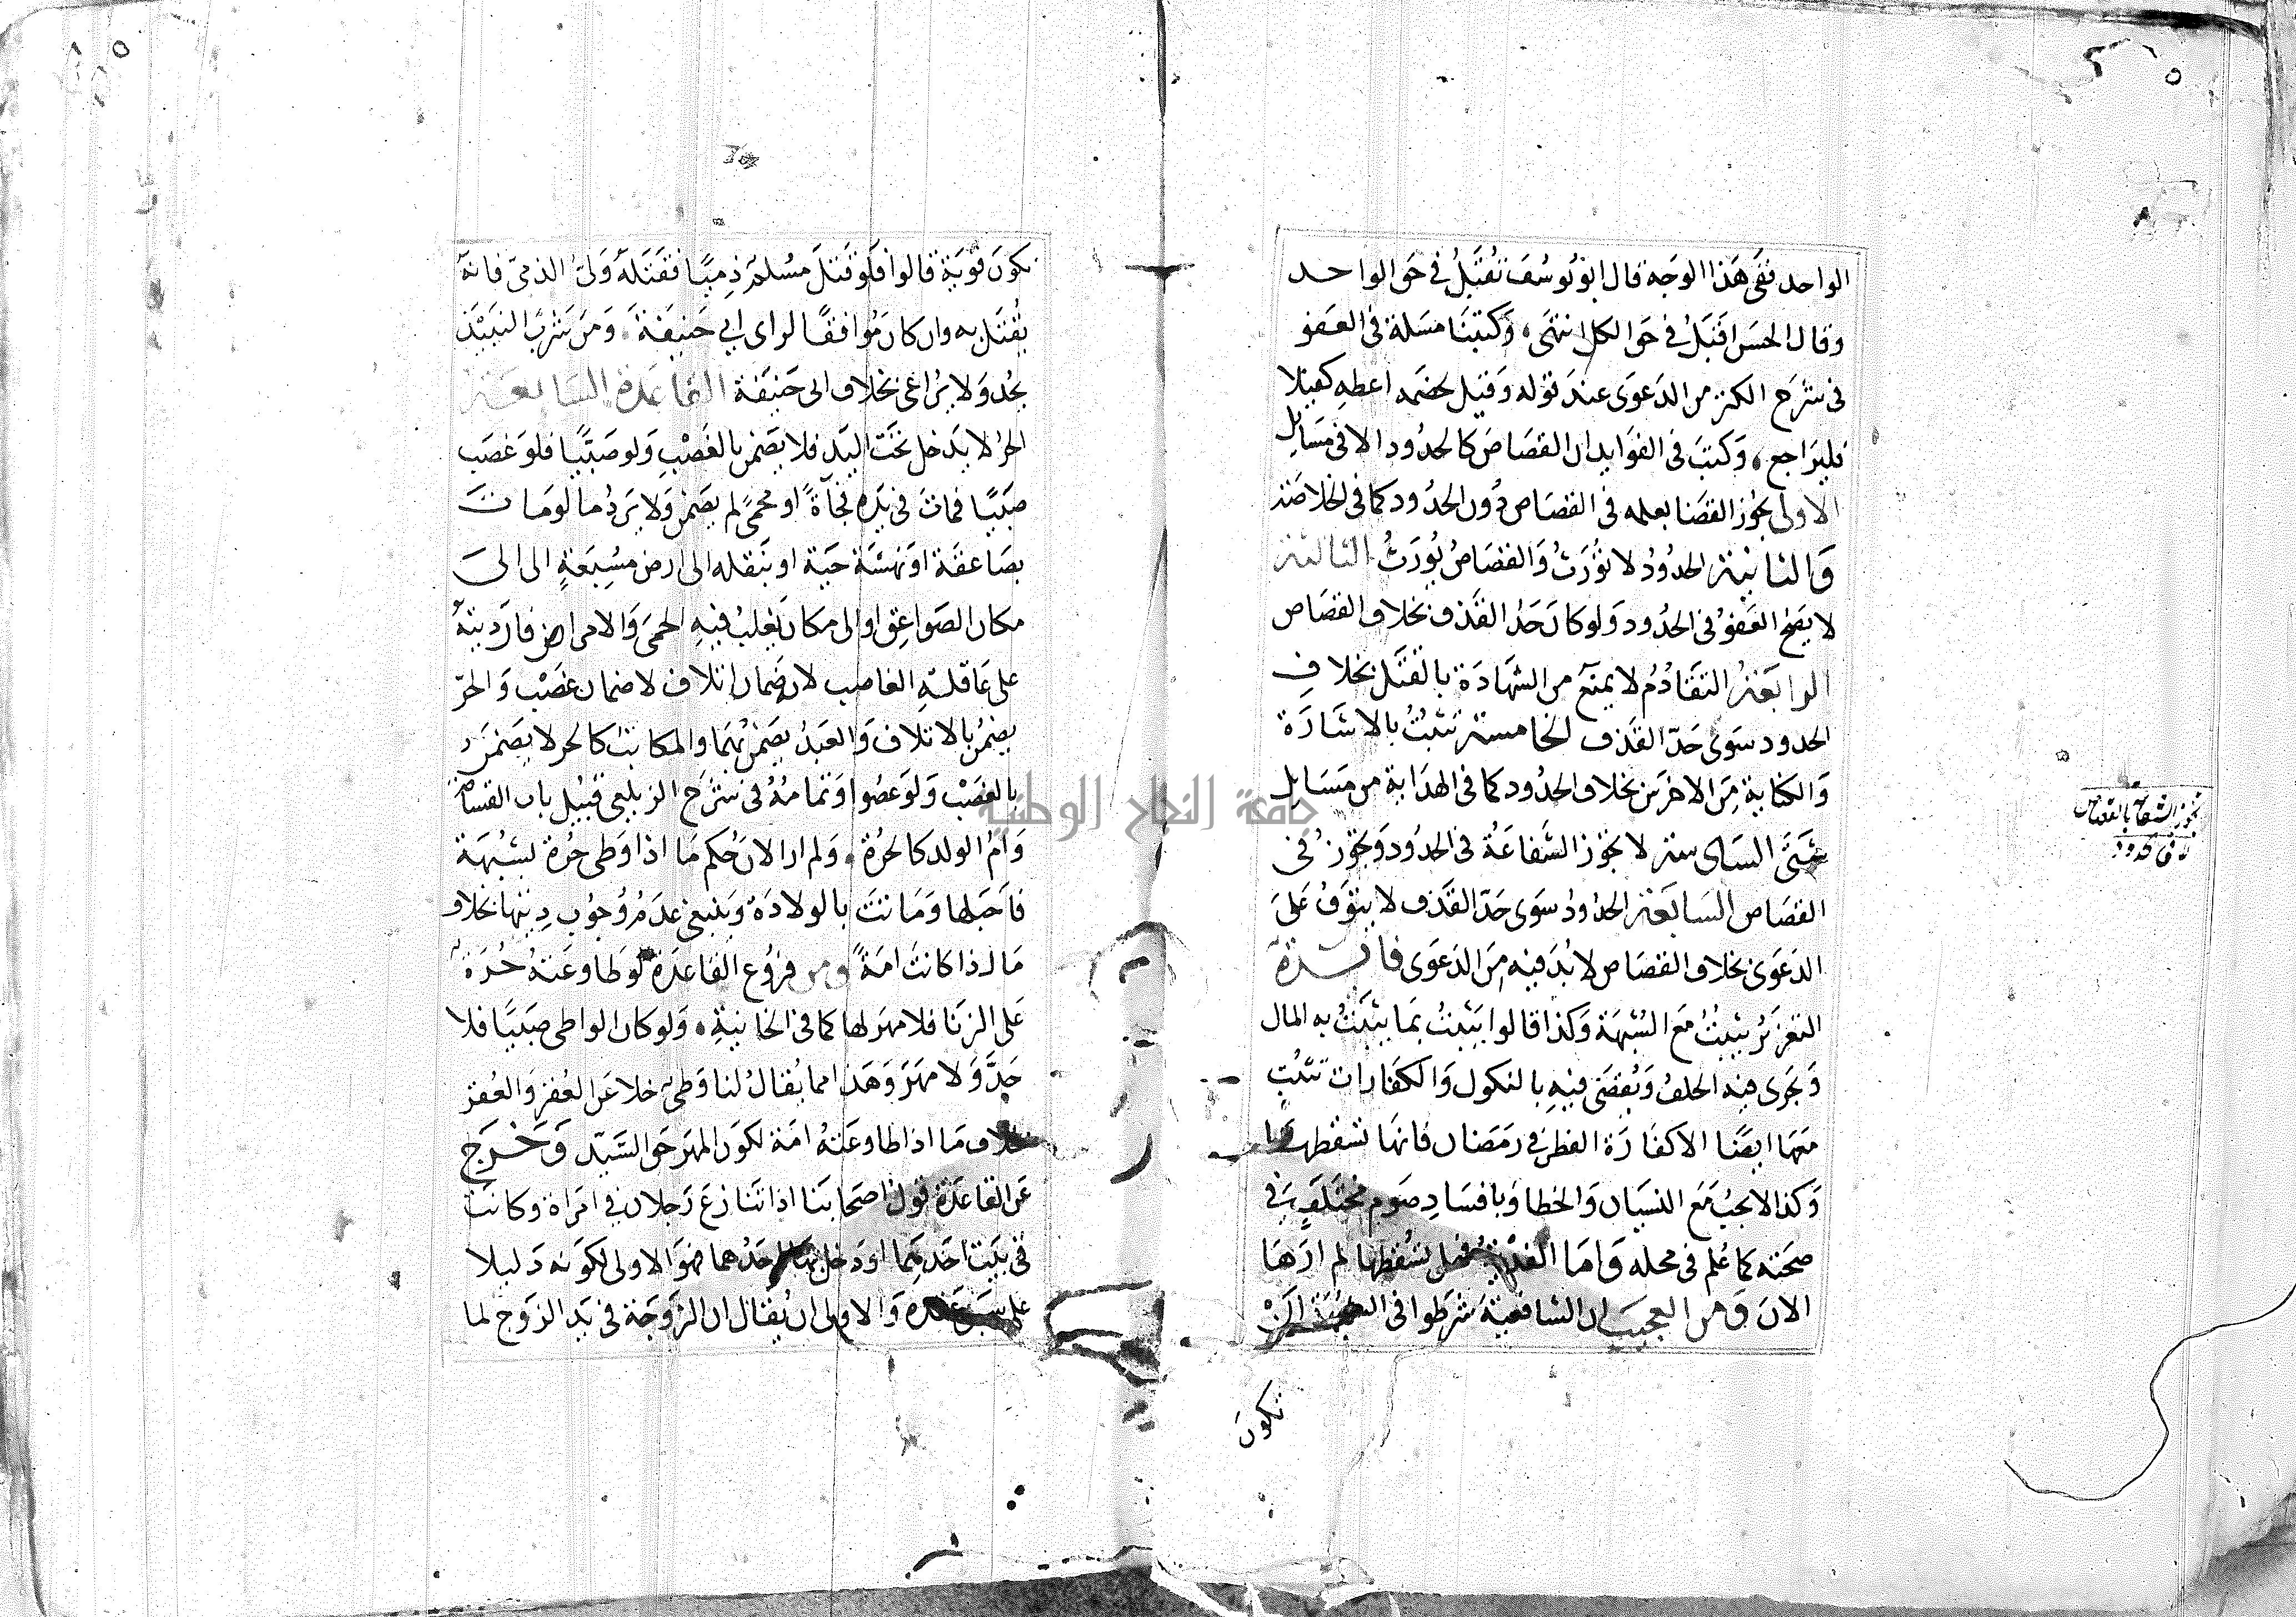 الواحد ففى هذا الوجه قال ابو يوسف تقبل في حق الواحد
وقال الحسن اقبل في حق الكل انتهى وكتبنا مسلة فى العفو
فى شرح الكنز من الدعوى عند قوله وقيل لخصمه اعطه كفيلا
فليراجع وكتبت فى الفوايد ان القصاص كالحدود الا فى مسايل
الاولى يجوز القضا بعلمه فى القصاص دون الحدود كما فى الخلاصة
والثانية الحدود لا تورث والقصاص يورث الثالثة
لا يصح العفو فى الحدود ولو كان حد القذف بخلاف القصاص
الرابعة التقادم لا يمنع من الشهادة بالقتل بخلاف
الحدود سوى حد القذف الخامسة يثبت بالاشارة
والكتابة من الاخرس بخلاف الحدود كما فى الهداية من مسايل
شتى السادسة لا تجوز الشفاعة فى الحدود وتجوز فى
القصاص السابعة الحدود سوى حد القذف لا يتوقف على
الدعوى بخلاف القصاص لا بد فيه من الدعوى فايدة
التعزير يثبت مع الشبهة وكذا قالوا يثبت بما يثبت به المال
ويجرى فيه الحلف ويقضى فيه بالنكول والكفارات تثبت
معها ايضا الا كفارة الفطر في رمضان فانها تسقطها
وكذا لا يجب مع النسيان والخطا وبافساد صوم مختلف في
صحته كما علم فى محله واما الفدية فهل تسقطها لم ارها
الان ومن العجب ان الشافعية شرطوا فى الشبهة ان
تكون
تجوز الشفاعة بالقصاص
لا فى الحدود
تكون قوية قالوا فلو قتل مسلم ذميا فقتله ولى الذمى فانه
يقتل به وان كان موافقا لراى ابي حنيفة ومن شرب النبيذ
يحد ولا يراعى بخلاف ابى حنيفة القاعدة السابعة
الحر لا يدخل تحت اليد فلا يضمن بالغصب ولو صبيا فلو غصب
صبيا فمات فى يده فجاة او بحمى لم يضمن ولا يرد ما لو مات
بصاعقة او نهشة حية او بنقله الى ارض مسبعة او الى
مكان الصواعق او الى مكان يغلب فيه الحمى والامراض فان ديته
على عاقلة الغاصب لان ضمان اتلاف لا ضمان غصب والحر
يضمن بالاتلاف والعبد يضمن بهما والمكاتب كالحر لا يضمن
بالغصب ولو عضوا وتمامه فى شرح الزيلعى قبيل باب القسامة
وام الولد كالحرة ولم ار الان حكم ما اذا وطى حرة بشبهة
فاحبلها وماتت بالولادة وينبغى عدم وجوب ديتها بخلاف
ما اذا كانت امة ومن فروع القاعدة لو طاوعته حرة
على الزنا فلا مهر لها كما فى الخانية ولو كان الواطى صبيا فلا
حد ولا مهر وهذا مما يقال لنا وطى خلا عن العقر والعقر
بخلاف ما اذا طاوعته امة لكون المهر حق السيد وخرج
عن القاعدة قول اصحابنا اذا تنازع رجلان في امراة وكانت
فى بيت احدهما او دخل بها احدهما فهو الاولى لكونه دليلا
على سبق عقده والاولى ان يقال ان الزوجة فى يد الزوج لما
جامعة النجاح الوطنية